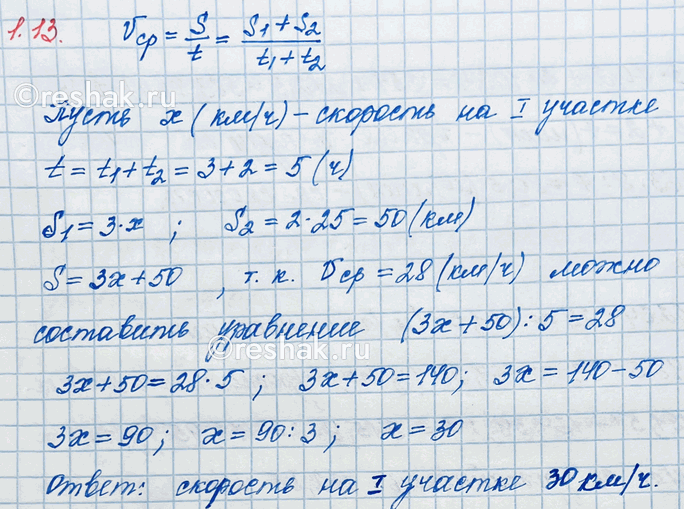 1.13. Vср = S/t = (S₁ + S₂)/(t₁ + t₂)
Пусть x (км/ч) – скорость на I участке
t = t₁ + t₂ = 3 + 2 = 5 (ч)
S₁ = 3·x ; S₂ = 2·25 = 50 (км)
S = 3x + 50 , т. к. Vср = 28 (км/ч) можно
составить уравнение (3x + 50) : 5 = 28
3x + 50 = 28·5 ; 3x + 50 = 140; 3x = 140 – 50
3x = 90; x = 90 : 3 ; x = 30
Ответ: скорость на I участке 30 км/ч.
reshak.ru
reshak.ru